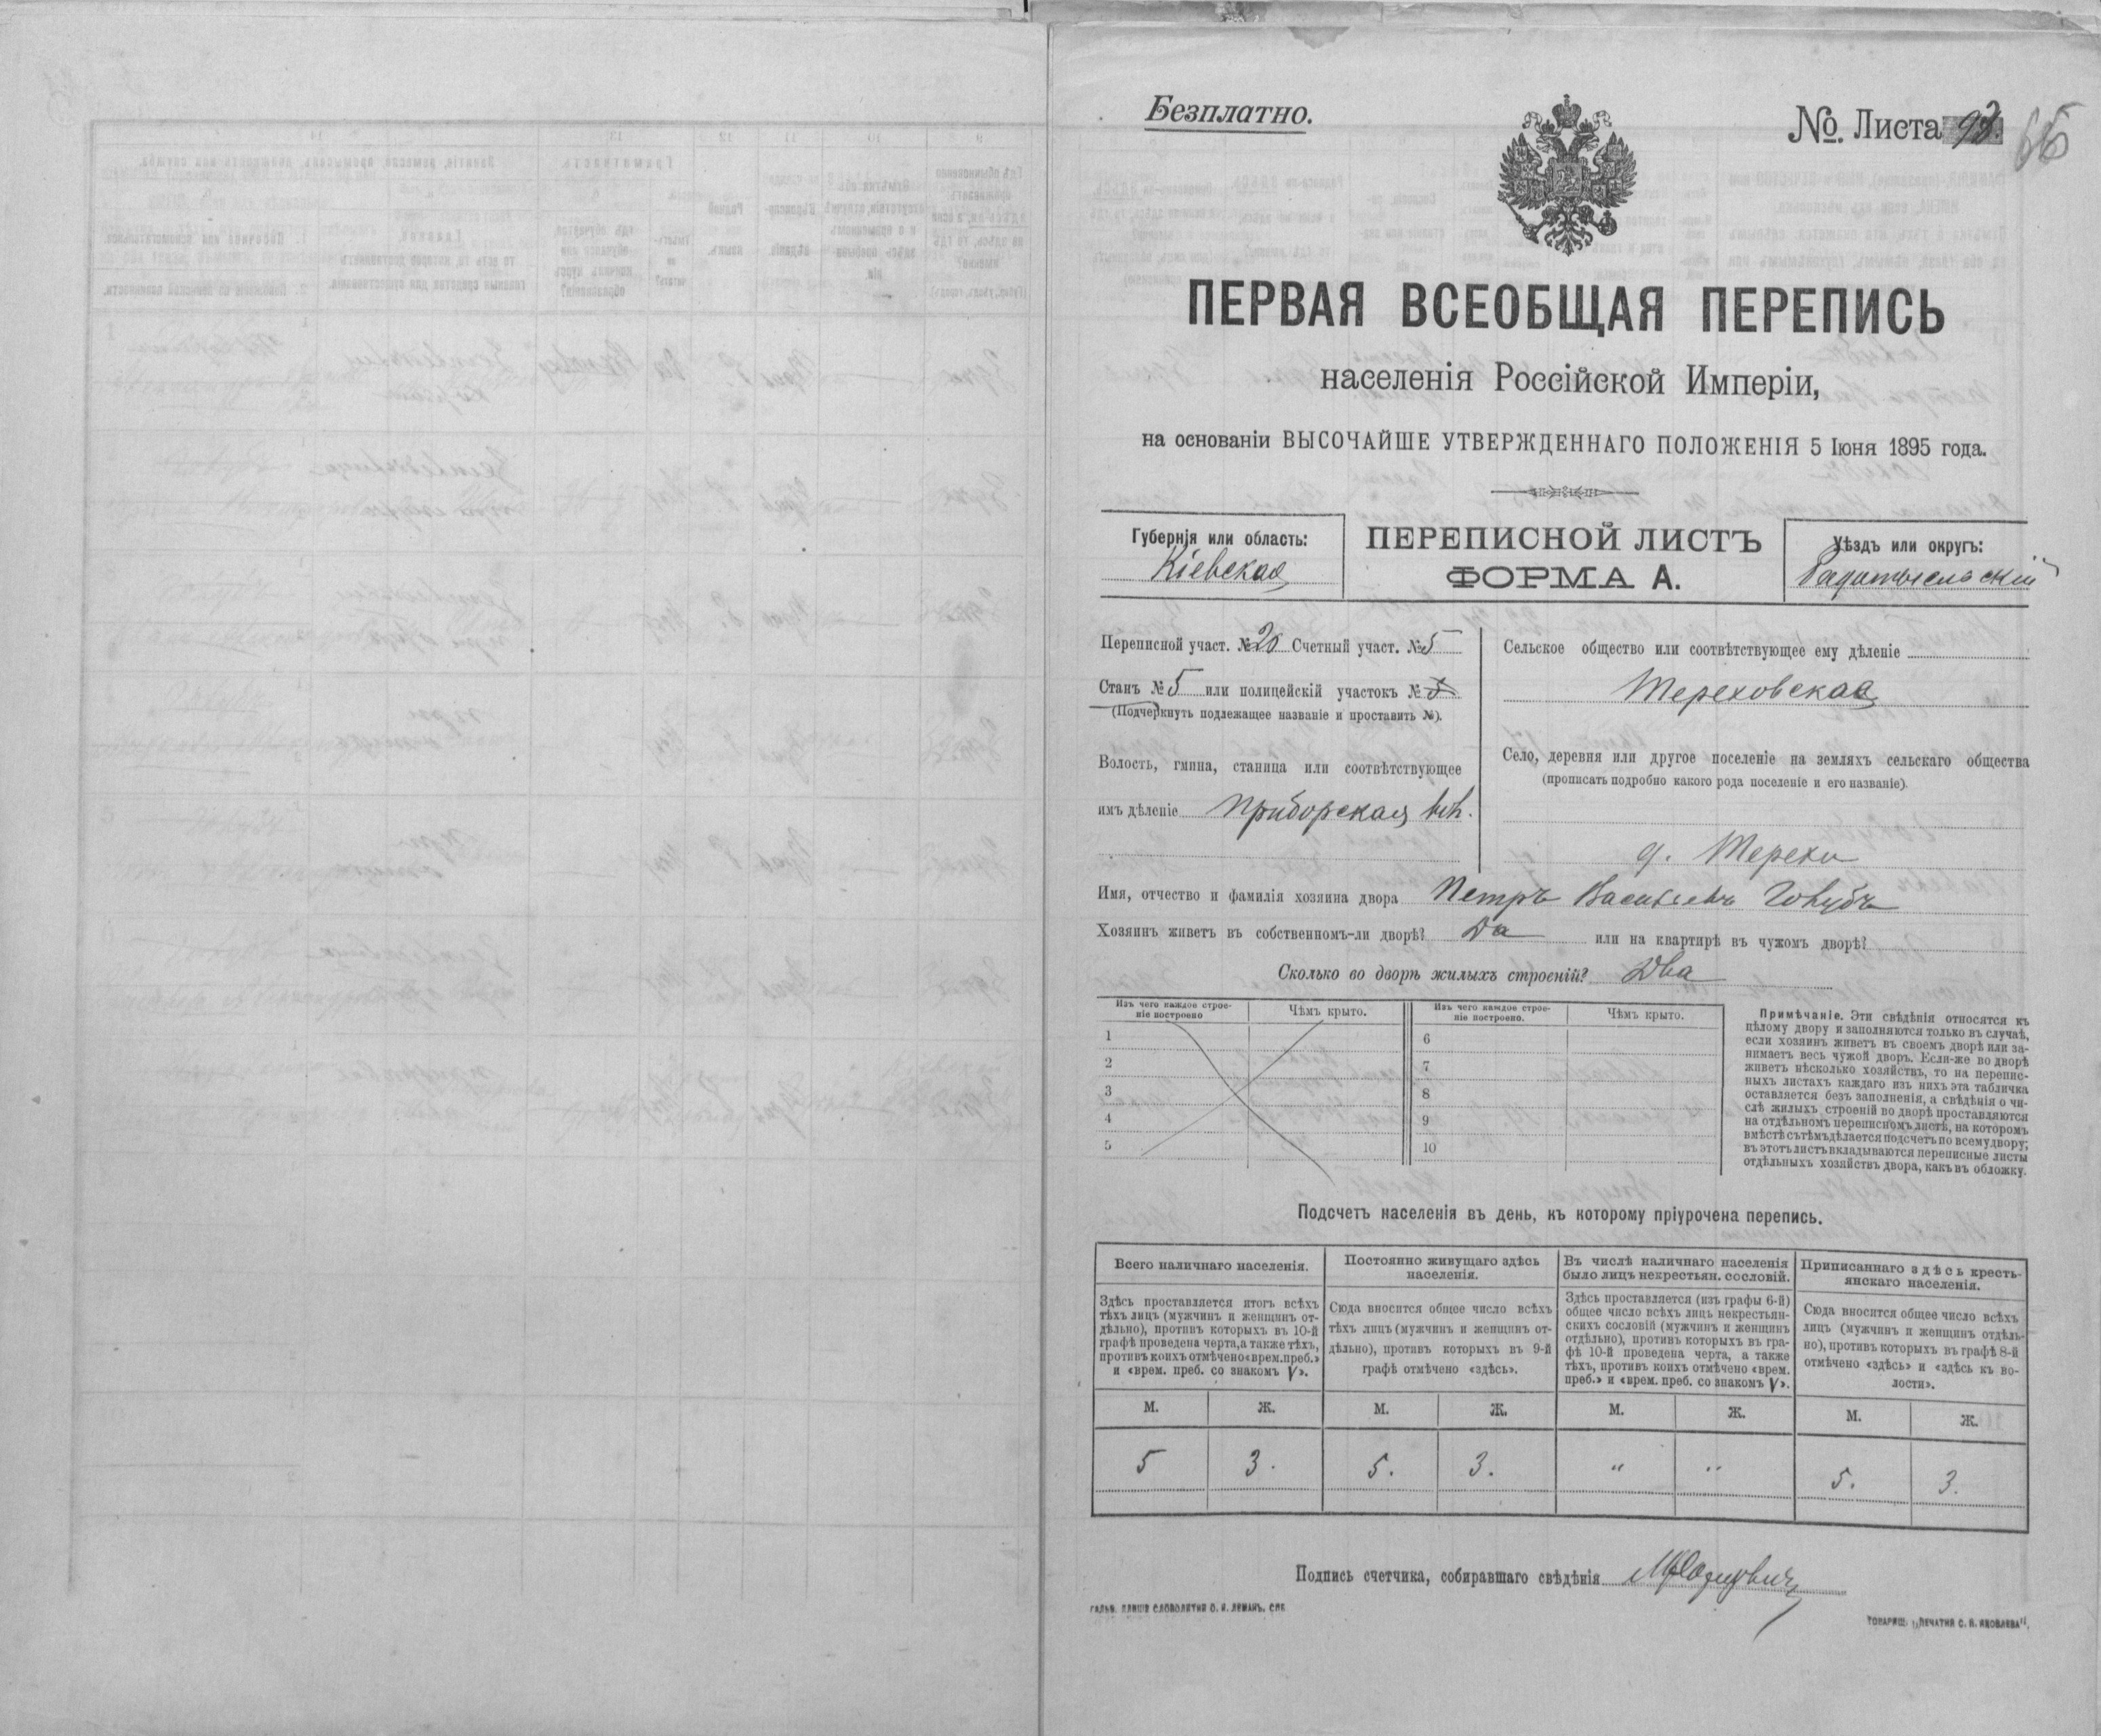 Безплатно.
№. Листа 93.
66
ПЕРВАЯ ВСЕОБЩАЯ ПЕРЕПИСЬ
населенія Россійской Имперіи,
на основаніи ВЫСОЧАЙШЕ УТВЕРЖДЕННАГО ПОЛОЖЕНІЯ 5 Іюня 1895 года.
Губернія или область:
Кіевская
ПЕРЕПИСНОЙ ЛИСТЪ
ФОРМА А.
Уѣздъ или округъ:
Радомысльскій
Переписной участ. № 20 Счетный участ. № 5
Станъ № 5 или полицейскій участокъ №
(Подчеркнуть подлежащее названіе и проставить №).
Волость, гмина, станица или соотвѣтствующее
имъ дѣленіе Приборская
Сельское общество или соотвѣтствующее ему дѣленіе
Тереховская
Село, деревня или другое поселеніе на земляхъ сельскаго общества
(прописать подробно какого рода поселеніе и его названіе).
д. Терехи
Имя, отчество и фамилія хозяина двора Петръ Васильевъ Голубъ
Хозяинъ живетъ въ собственномъ-ли дворѣ? Да или на квартирѣ въ чужомъ дворѣ?
Сколько во дворѣ жилыхъ строеній? Два
Изъ чего каждое строе-
ніе построено
Чѣмъ крыто.
Изъ чего каждое строе-
ніе построено.
Чѣмъ крыто.
1
2
3
4
5
6
7
8
9
10
Примѣчаніе. Эти свѣдѣнія относятся къ
цѣлому двору и заполняются только въ случаѣ,
если хозяинъ живетъ въ своемъ дворѣ или за-
нимаетъ весь чужой дворъ. Если-же во дворѣ
живетъ нѣсколько хозяйствъ, то на перепис-
ныхъ листахъ каждаго изъ нихъ эта табличка
оставляется безъ заполненія, а свѣдѣнія о чи-
слѣ жилыхъ строеній во дворѣ проставляются
на отдѣльномъ переписномъ листѣ, на которомъ
вмѣстѣ съ тѣмъ дѣлается подсчетъ по всему двору;
въ этотъ листъ вкладываются переписные листы
отдѣльныхъ хозяйствъ двора, какъ въ обложку.
Подсчетъ населенія въ день, къ которому пріурочена перепись.
Всего наличнаго населенія.
Здѣсь проставляется итогъ всѣхъ
тѣхъ лицъ (мужчинъ и женщинъ от-
дѣльно), противъ которыхъ въ 10-й
графѣ проведена черта, а также тѣхъ,
противъ коихъ отмѣчено «врем. преб.»
и «врем. преб. со знакомъ V».
Постоянно живущаго здѣсь
населенія.
Сюда вносится общее число всѣхъ
тѣхъ лицъ (мужчинъ и женщинъ от-
дѣльно), противъ которыхъ въ 9-й
графѣ отмѣчено «здѣсь».
Въ числѣ наличнаго населенія
было лицъ некрестьян. сословій.
Здѣсь проставляется (изъ графы 6-й)
общее число всѣхъ лицъ некрестьян-
скихъ сословій (мужчинъ и женщинъ
отдѣльно), противъ которыхъ въ гра-
фѣ 10-й проведена черта, а также
тѣхъ, противъ коихъ отмѣчено «врем.
преб.» и «врем. преб. со знакомъ V».
Приписаннаго здѣсь кресть-
янскаго населенія.
Сюда вносится общее число всѣхъ
лицъ (мужчинъ и женщинъ отдѣль-
но), противъ которыхъ въ графѣ 8-й
отмѣчено «здѣсь» и «здѣсь къ во-
лости».
М. Ж. М. Ж. М. Ж. М. Ж.
5 3. 5. 3. " " 5. 3.
Подпись счетчика, собиравшаго свѣдѣнія
ГАЛЬВ. КЛИШЕ СЛОВОЛИТНИ О. И. ЛЕМАНЪ. СПБ
ТОВАРИЩ. „ПЕЧАТНЯ С. П. ЯКОВЛЕВА".